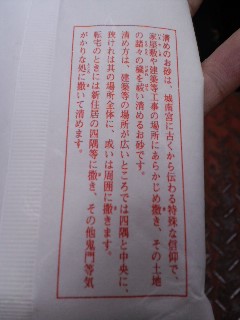 清めのお砂は、城南宮に古くから伝わる特殊な信仰で、
家屋敷や建築等工事の場所にあらかじめ撒き、その土地
の諸々の穢を祓い清めるお砂です。
清め方は、建築等の場所が広いところでは四隅と中央に、
狭ければ其の場所全体に、或いは周囲に撒きます。
転宅のときには新住居の四隅等に撒き、その他鬼門等気
がかりな処に撒いて清めます。